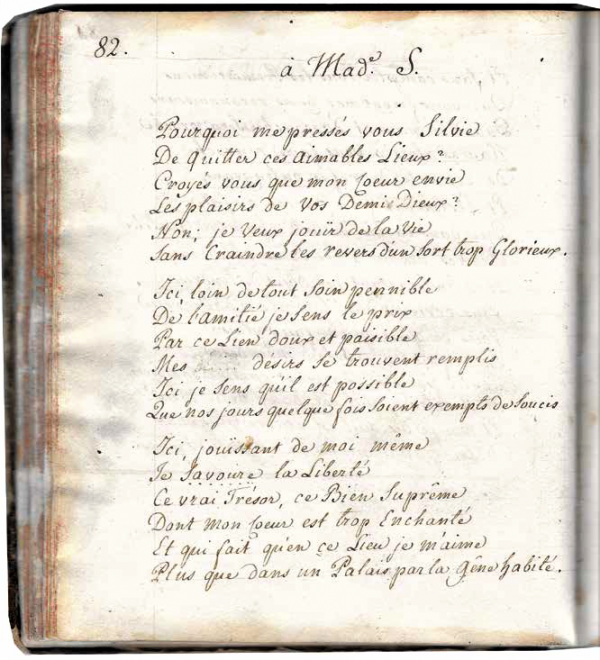 82.
à Mad.e S.
Pourquoi me pressés vous Silvie
De quitter ces aimables Lieux?
Croyés vous que mon Coeur envie
Les plaisirs de vos Demi Dieux?
Non; je veux jouïr de la Vie
Sans Craindre les revers d'un sort trop Glorieux.
Ici loin de tout soin pennible
De l'amitié je sens le prix
Par ce Lien doux et paisible
Mes désirs se trouvent remplis
Ici je sens qu'il est possible
Que nos jours quelque fois soient exempts de soucis
Ici, jouïssant de moi même
Je Savoure la Liberté
Ce vrai Trésor, ce Bien Suprême
Dont mon Coeur est trop Enchanté
Et qui fait qu'en ce Lieu je m'aime
Plus que dans un Palais par la Gêne habité.